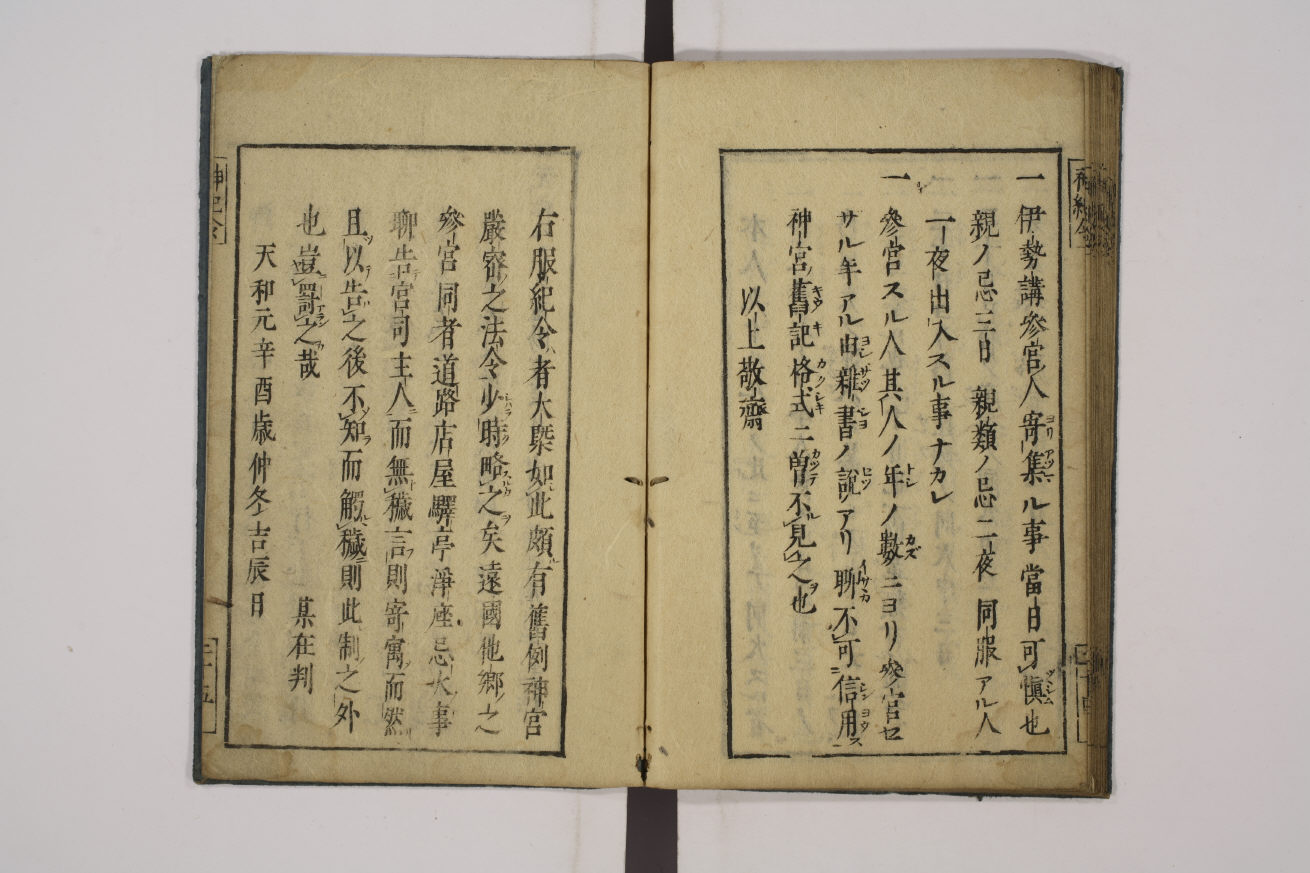 一伊勢講參宮人寄集ル事當日可愼也
親ノ忌三日親類ノ忌二夜同服アル人
一夜出入スル事ナカレ
一參宮スル人其人ノ年ノ數ニヨリ參宮セ
サル年アル由雜書ノ說アリ聊不可信用
神宮舊記格式ニ曽不見之也
以上敬齋
右服紀令者大槩如此頗有舊例神宮
嚴密之法令少時略之矣遠國他鄕之
參宮同者道路店屋驛亭淨座忌火事
聊告宮司主人而無穢言則寄寓而然
且以告之後不知而觸穢則此制之外
也豈罸之哉
天和元辛酉歳仲冬吉辰日
某在判